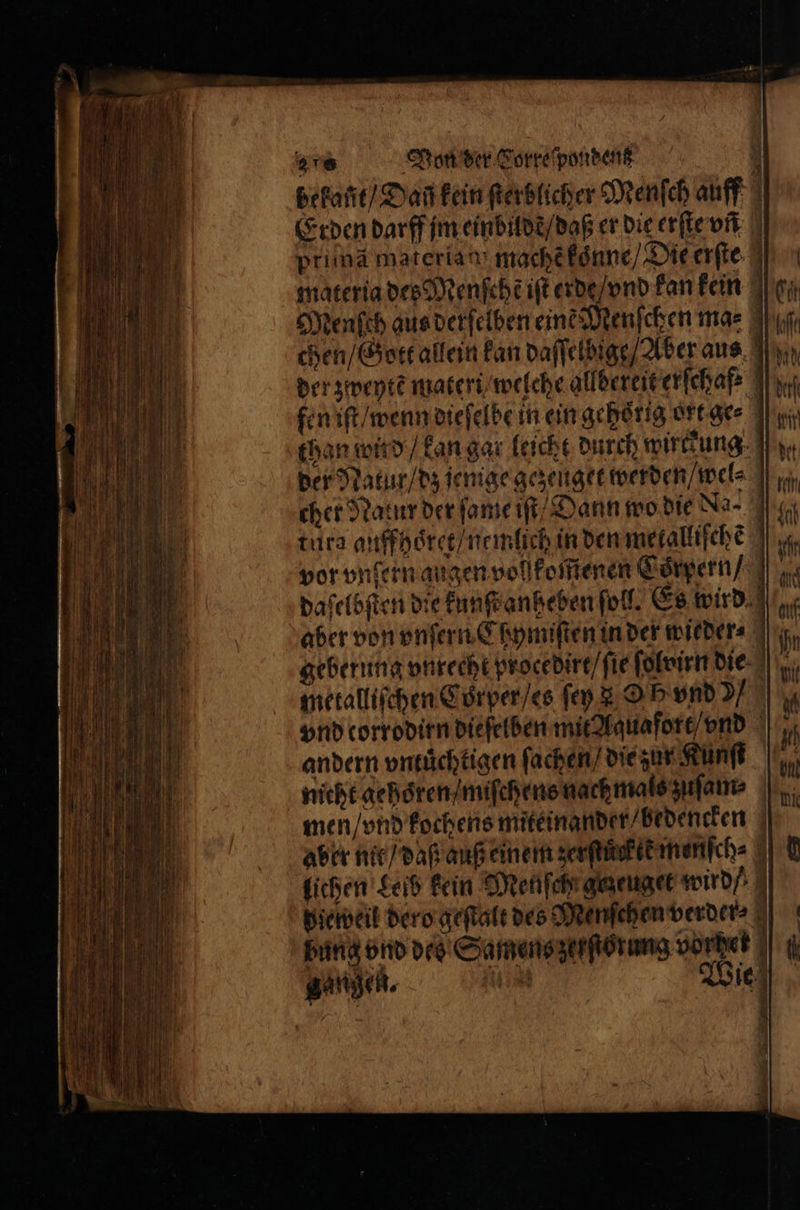 Von der Correſpondentz
bekañt/Dañ kein ſterblicher Menſch auff
Erden darff jm einbildẽ/daß er die erſte vñ
primã materiam machẽ koͤnne/Die erſte
materia des Menſchẽ iſt erde/vnd kan kein
Menſch aus derſelben einẽ Menſchen ma⸗
chen/Gott allein kan daſſelbige/Aber aus
der zweytẽ materi/welche allbereit erſchaf⸗
fen iſt/wenn dieſelbe in ein gehoͤrig ort ge⸗
than wird/kan gar leicht durch wirckung
der Natur/dz jenige gezeuget werden/wel⸗
cher Natur der ſame iſt/Dann wo die Na-
tura auffhoͤret/nemlich in den metalliſchẽ
vor vnſern augen vollkom̃enen Coͤrpern/
daſelbſten die kunſt anheben ſoll. Es wird
aber von vnſern Chymiſten in der wieder⸗
geberung vnrecht procedirt/ſie ſolvirn die
metalliſchen Coͤrper/es ſey ☿ ☉ ♄ vnd ☽/
vnd corrodirn dieſelben mit Aquafort/vnd
andern vntuͤchtigen ſachen/die zur Kunſt
nicht gehoͤren/miſchens nachmals zuſam⸗
men/vnd kochens miteinander/bedencken
aber nit/daß auß einem zerſtuͤcktẽ menſch⸗
lichen Leib kein Menſch gezeuget wird/
dieweil dero geſtalt des Menſchen verder⸗
bung vnd des Samens zerſtoͤrung vorher
gangen.
Wie